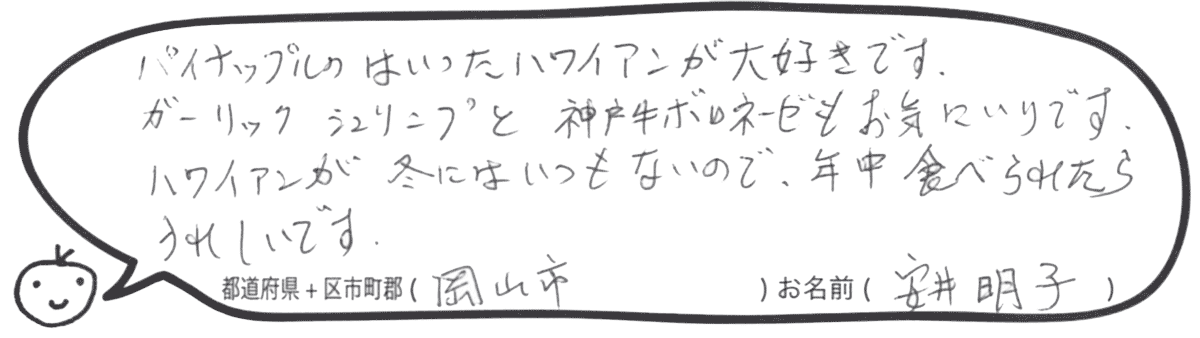 パイナップルの はいったハワイアンが大好きです.
ガーリック シュリンプと 神戸牛ボロネーゼもお気にいりです.
ハワイアンが 冬にはいつもないので、年中 食べられたら
うれしいです.
都道府県+区市町郡( 岡山市 ) お名前( 安井明子 )